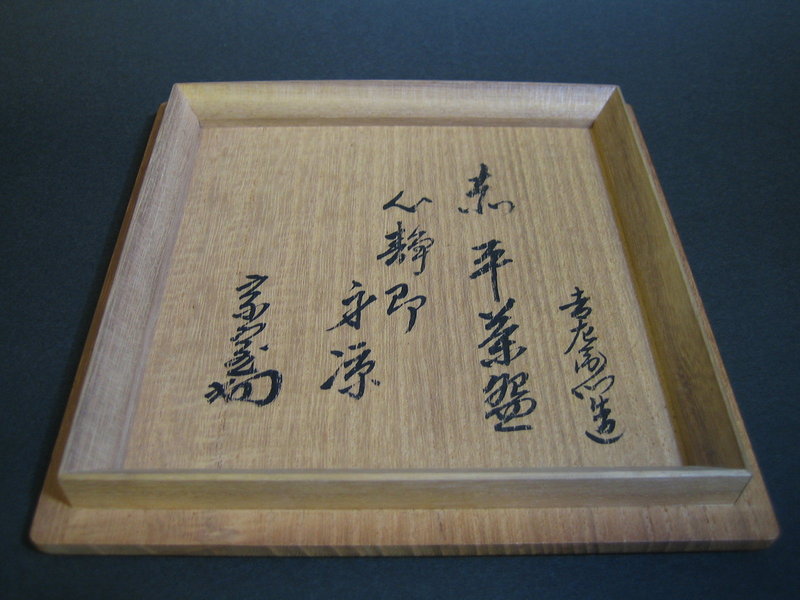 吉左衛門造
赤 平茶盌
心静即
身涼
宗室